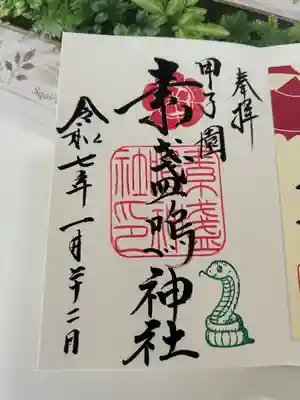 奉拝
甲子園
素盞嗚神社
素盞
嗚神
社印
令和七年一月廿二日